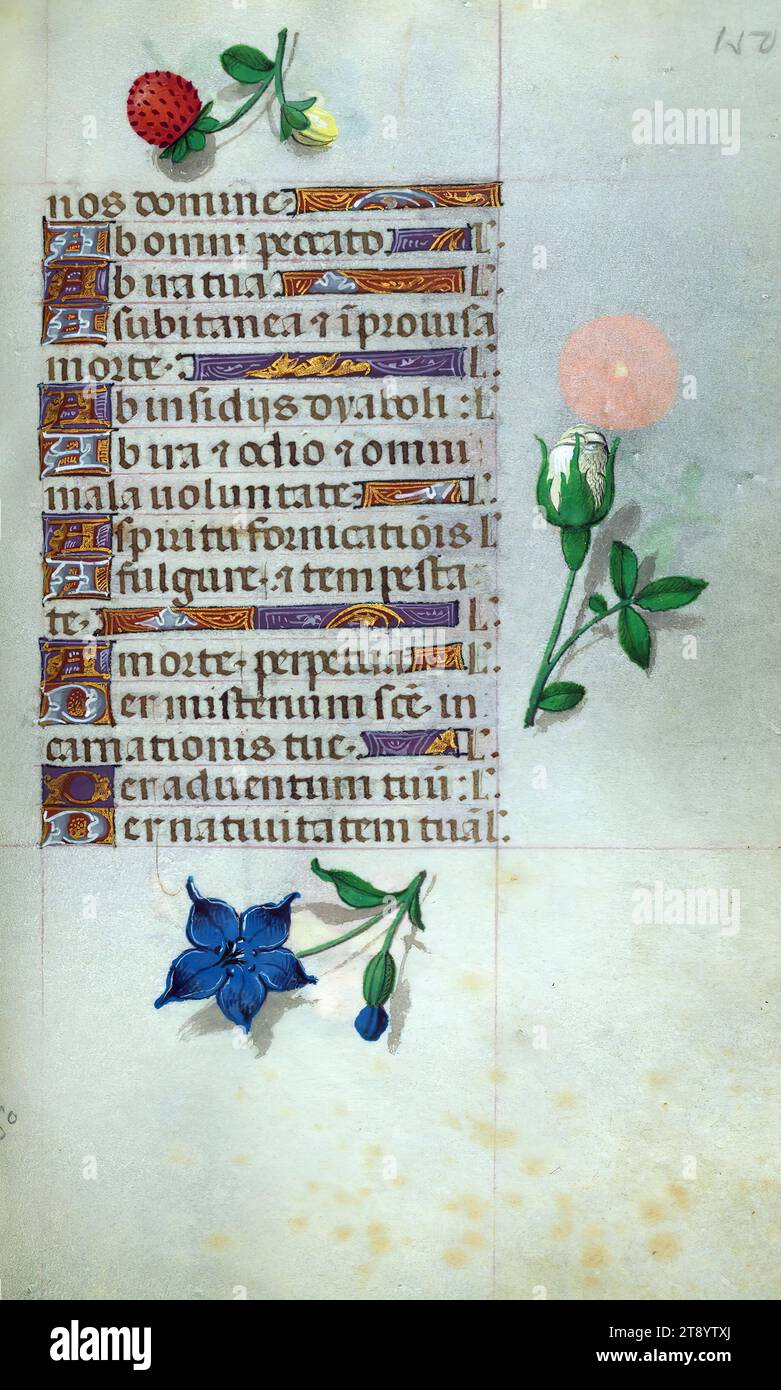 150
nos domine.
Ab omni peccato L.
Ab ira tua L.
A subitanea ⁊ īprouisa
morte. L.
Ab insidijs dyaboli: L.
Ab ira ⁊ odio ⁊ omni
mala uoluntate. L.
A spiritu fornicatiōis L.
A fulgure. ⁊ tempesta
te. L.
A morte. perpetua L.
Per misterium scē in
carnationis tue. L.
Per aduentum tuū: L.
Per natiuitatem tuā L.
alamy
Image ID: 2T8YTXJ
www.alamy.com